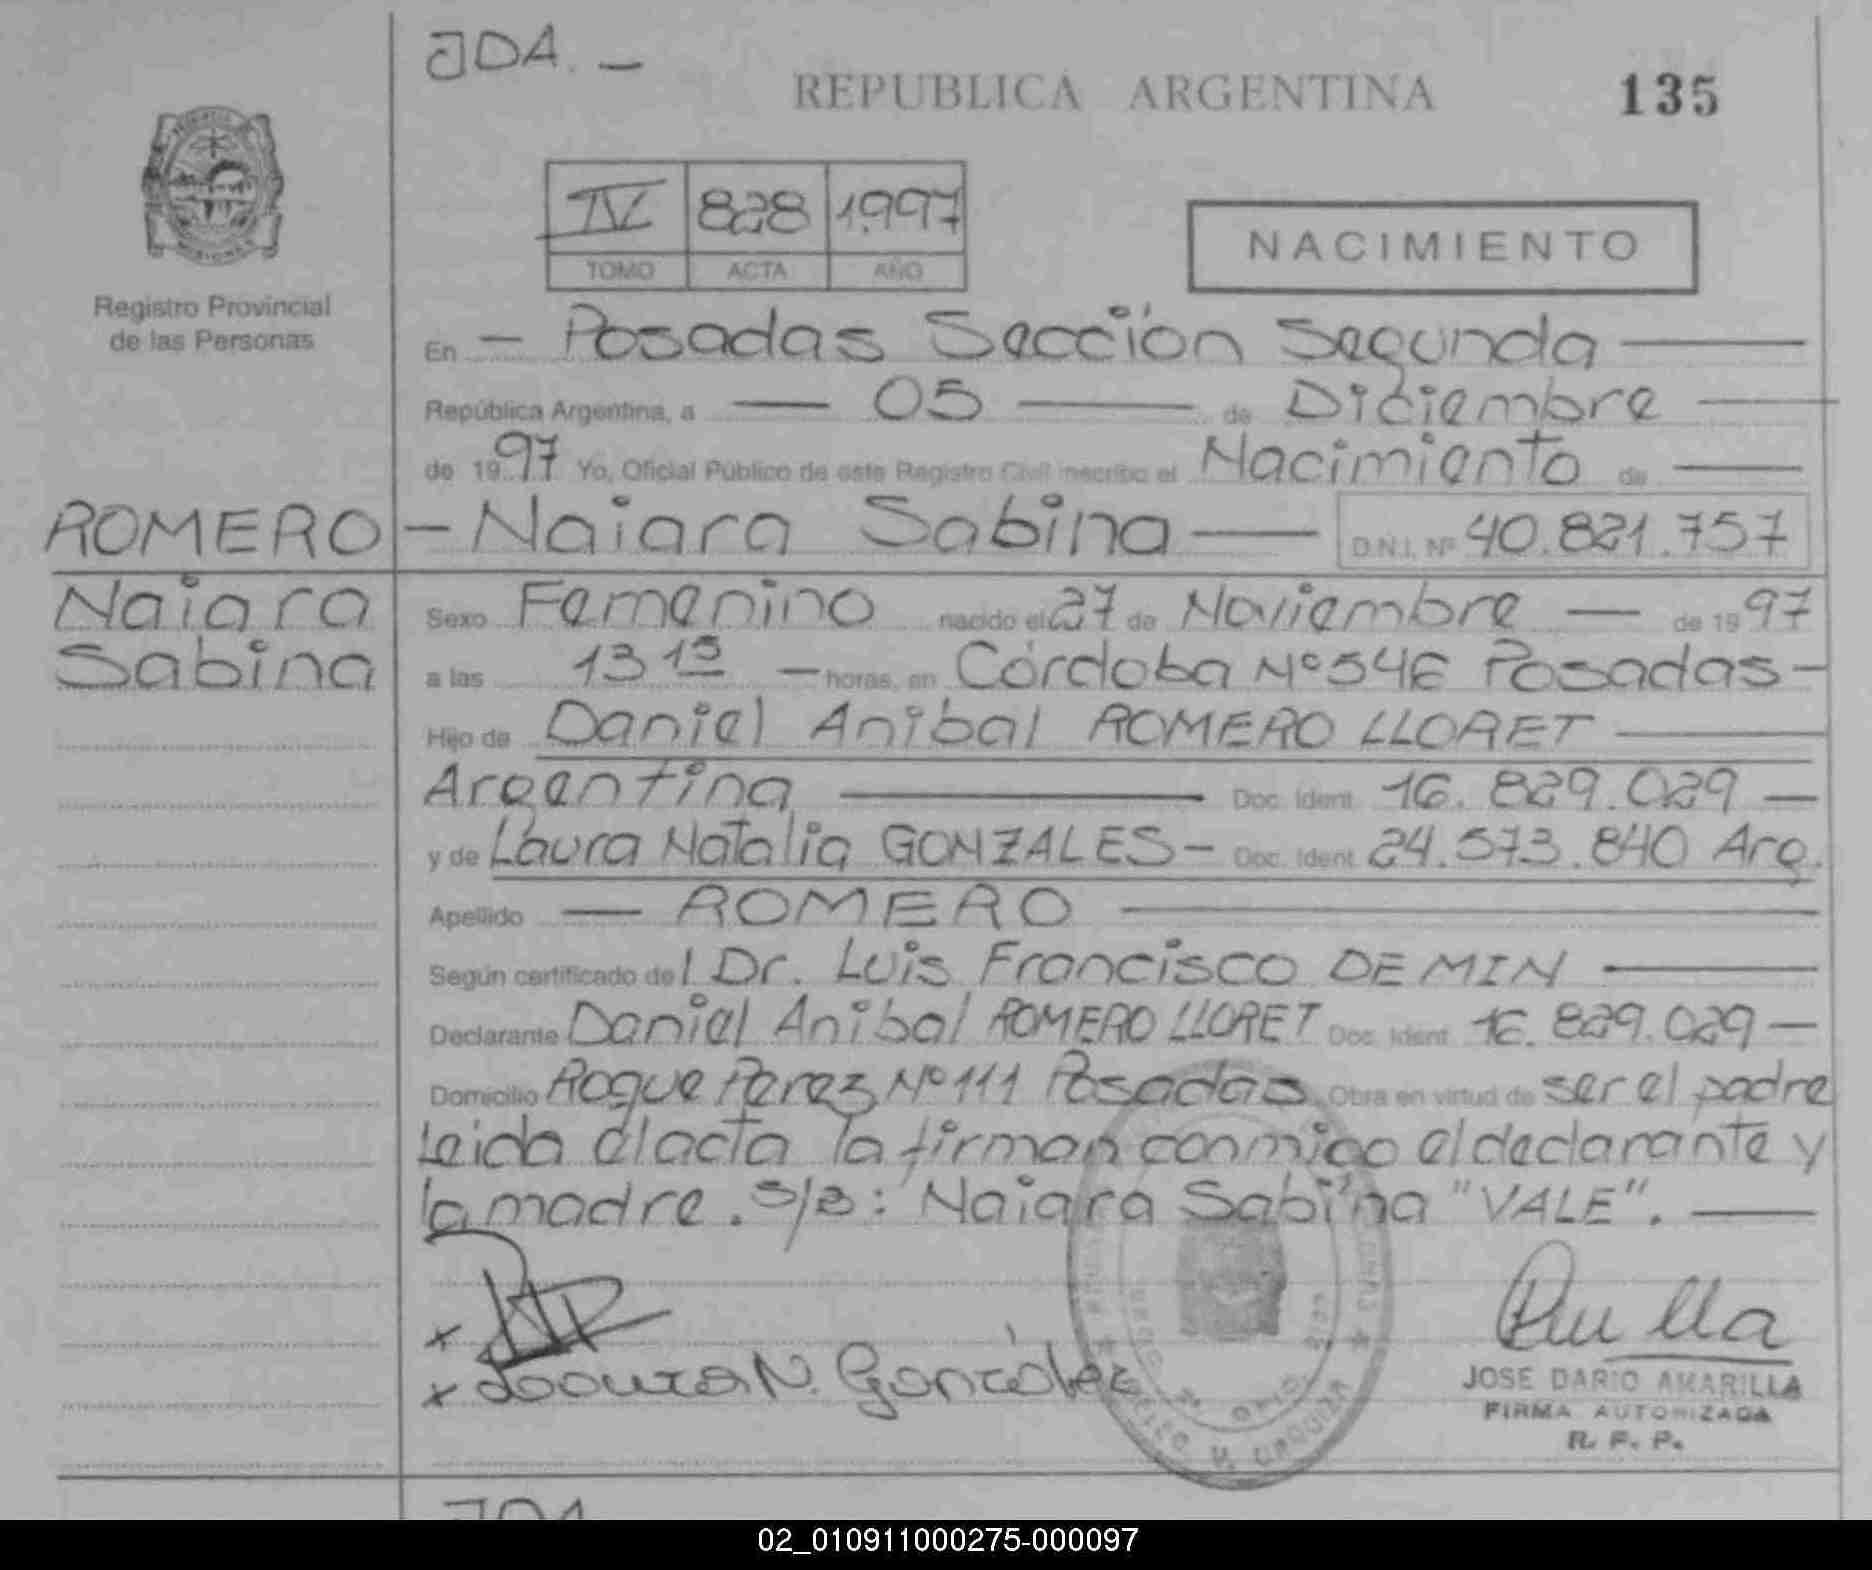 JDA. -
REPUBLICA ARGENTINA
135
IV 828 1.997
TOMO ACTA AÑO
NACIMIENTO
Registro Provincial
de las Personas
En - Posadas Sección Segunda
República Argentina, a 05 de Diciembre
de 1997 Yo, Oficial Público de este Registro Civil inscribo el Nacimiento de
ROMERO
Naiara
Sabina
- Naiara Sabina D.N.I. Nº 40.821.757
Sexo Femenino nacido el 27 de Noviembre de 1997
a las 13 15 horas, en Córdoba Nº 546 Posadas -
Hijo de Daniel Anibal ROMERO LLORET
Argentina Doc. Ident. 16. 829.029 -
y de Laura Natalia GONZALES - Doc. Ident. 24.573.840 Arg.
Apellido - ROMERO
Según certificado del Dr. Luis Francisco DE MIN
Declarante Daniel Anibal ROMERO LLORET Doc. Ident. 16. 829.029 -
Domicilio Roque Perez Nº 111 Posadas. Obra en virtud de ser el padre
Leida el acta la firman conmigo el declarante y
la madre. S/B: Naiara Sabina "VALE".
x
x Laura N. González
JOSE DARIO AMARILLA
FIRMA AUTORIZADA
R. P. P.
JDA
02_010911000275-000097